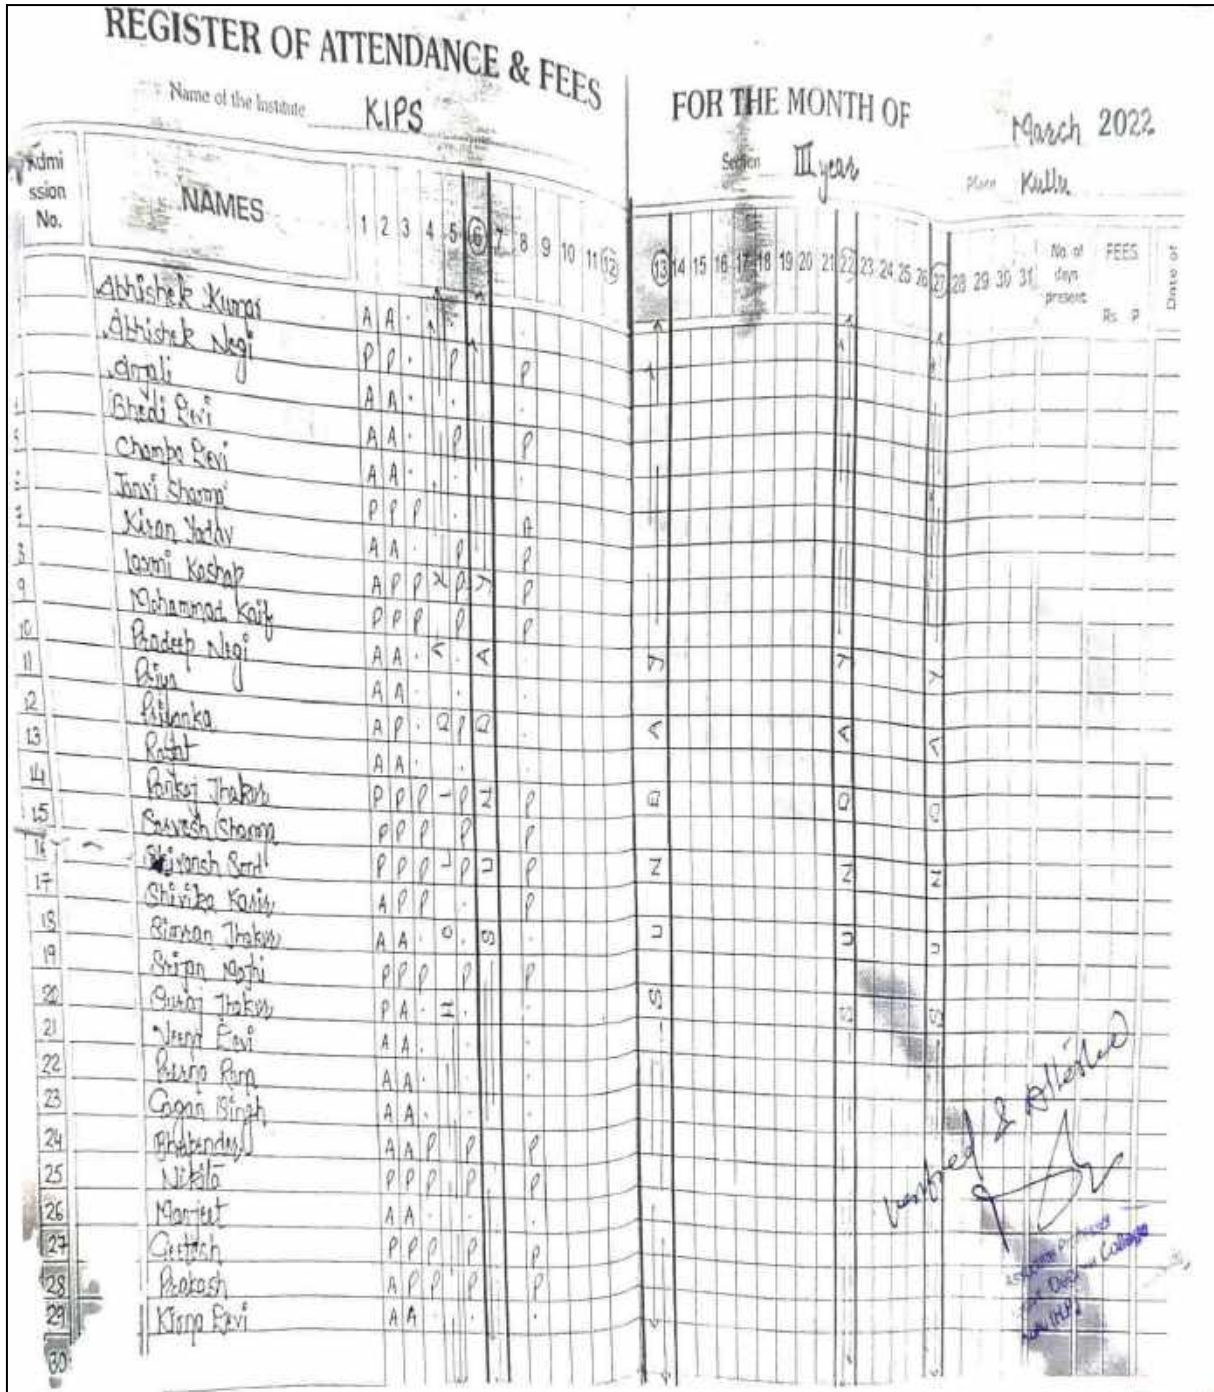 REGISTER OF ATTENDANCE & FEES FOR THE MONTH OF March 2022
Name of the Institute KIPS Section III year Place Kullu
Admi ssion No. NAMES 1 2 3 4 5 6 7 8 9 10 11 12 13 14 15 16 17 18 19 20 21 22 23 24 25 26 27 28 29 30 31 No. of days present FEES Rs. P Date of
Abhishek Kumar A A .
Abhishek Negi P P . P P
Anjali A A .
Bhedi Devi A A . P P
Champa Devi A A .
Janvi Sharma P P P . A
Kiran Yadav A A . P P
8 Laxmi Kashap A P P P P
9 Mohammad Kaif P P P P P
10 Pradeep Negi A A .
11 Priya A A .
12 Priyanka A P . P
13 Rajat A A .
14 Pankaj Thakur P P P P P
15 Sarvesh Sharma P P P P P
16 Shivansh P P P P P
17 Shivika A P P . P
18 Simran Thakur A A .
19 Srijan P P P P P
20 Suraj Thakur P A .
21 Veena Devi A A .
22 Ram A A .
23 Gagan Singh A A .
24 A A P P P
25 Nikita P P P P P
26 Manjeet A A .
27 P P P P P
28 Prakash A P P P P
29 Devi A A .
30
HOLI DAY
SUNDAY
SUNDAY
SUNDAY
SUNDAY
Verified & Attested
College